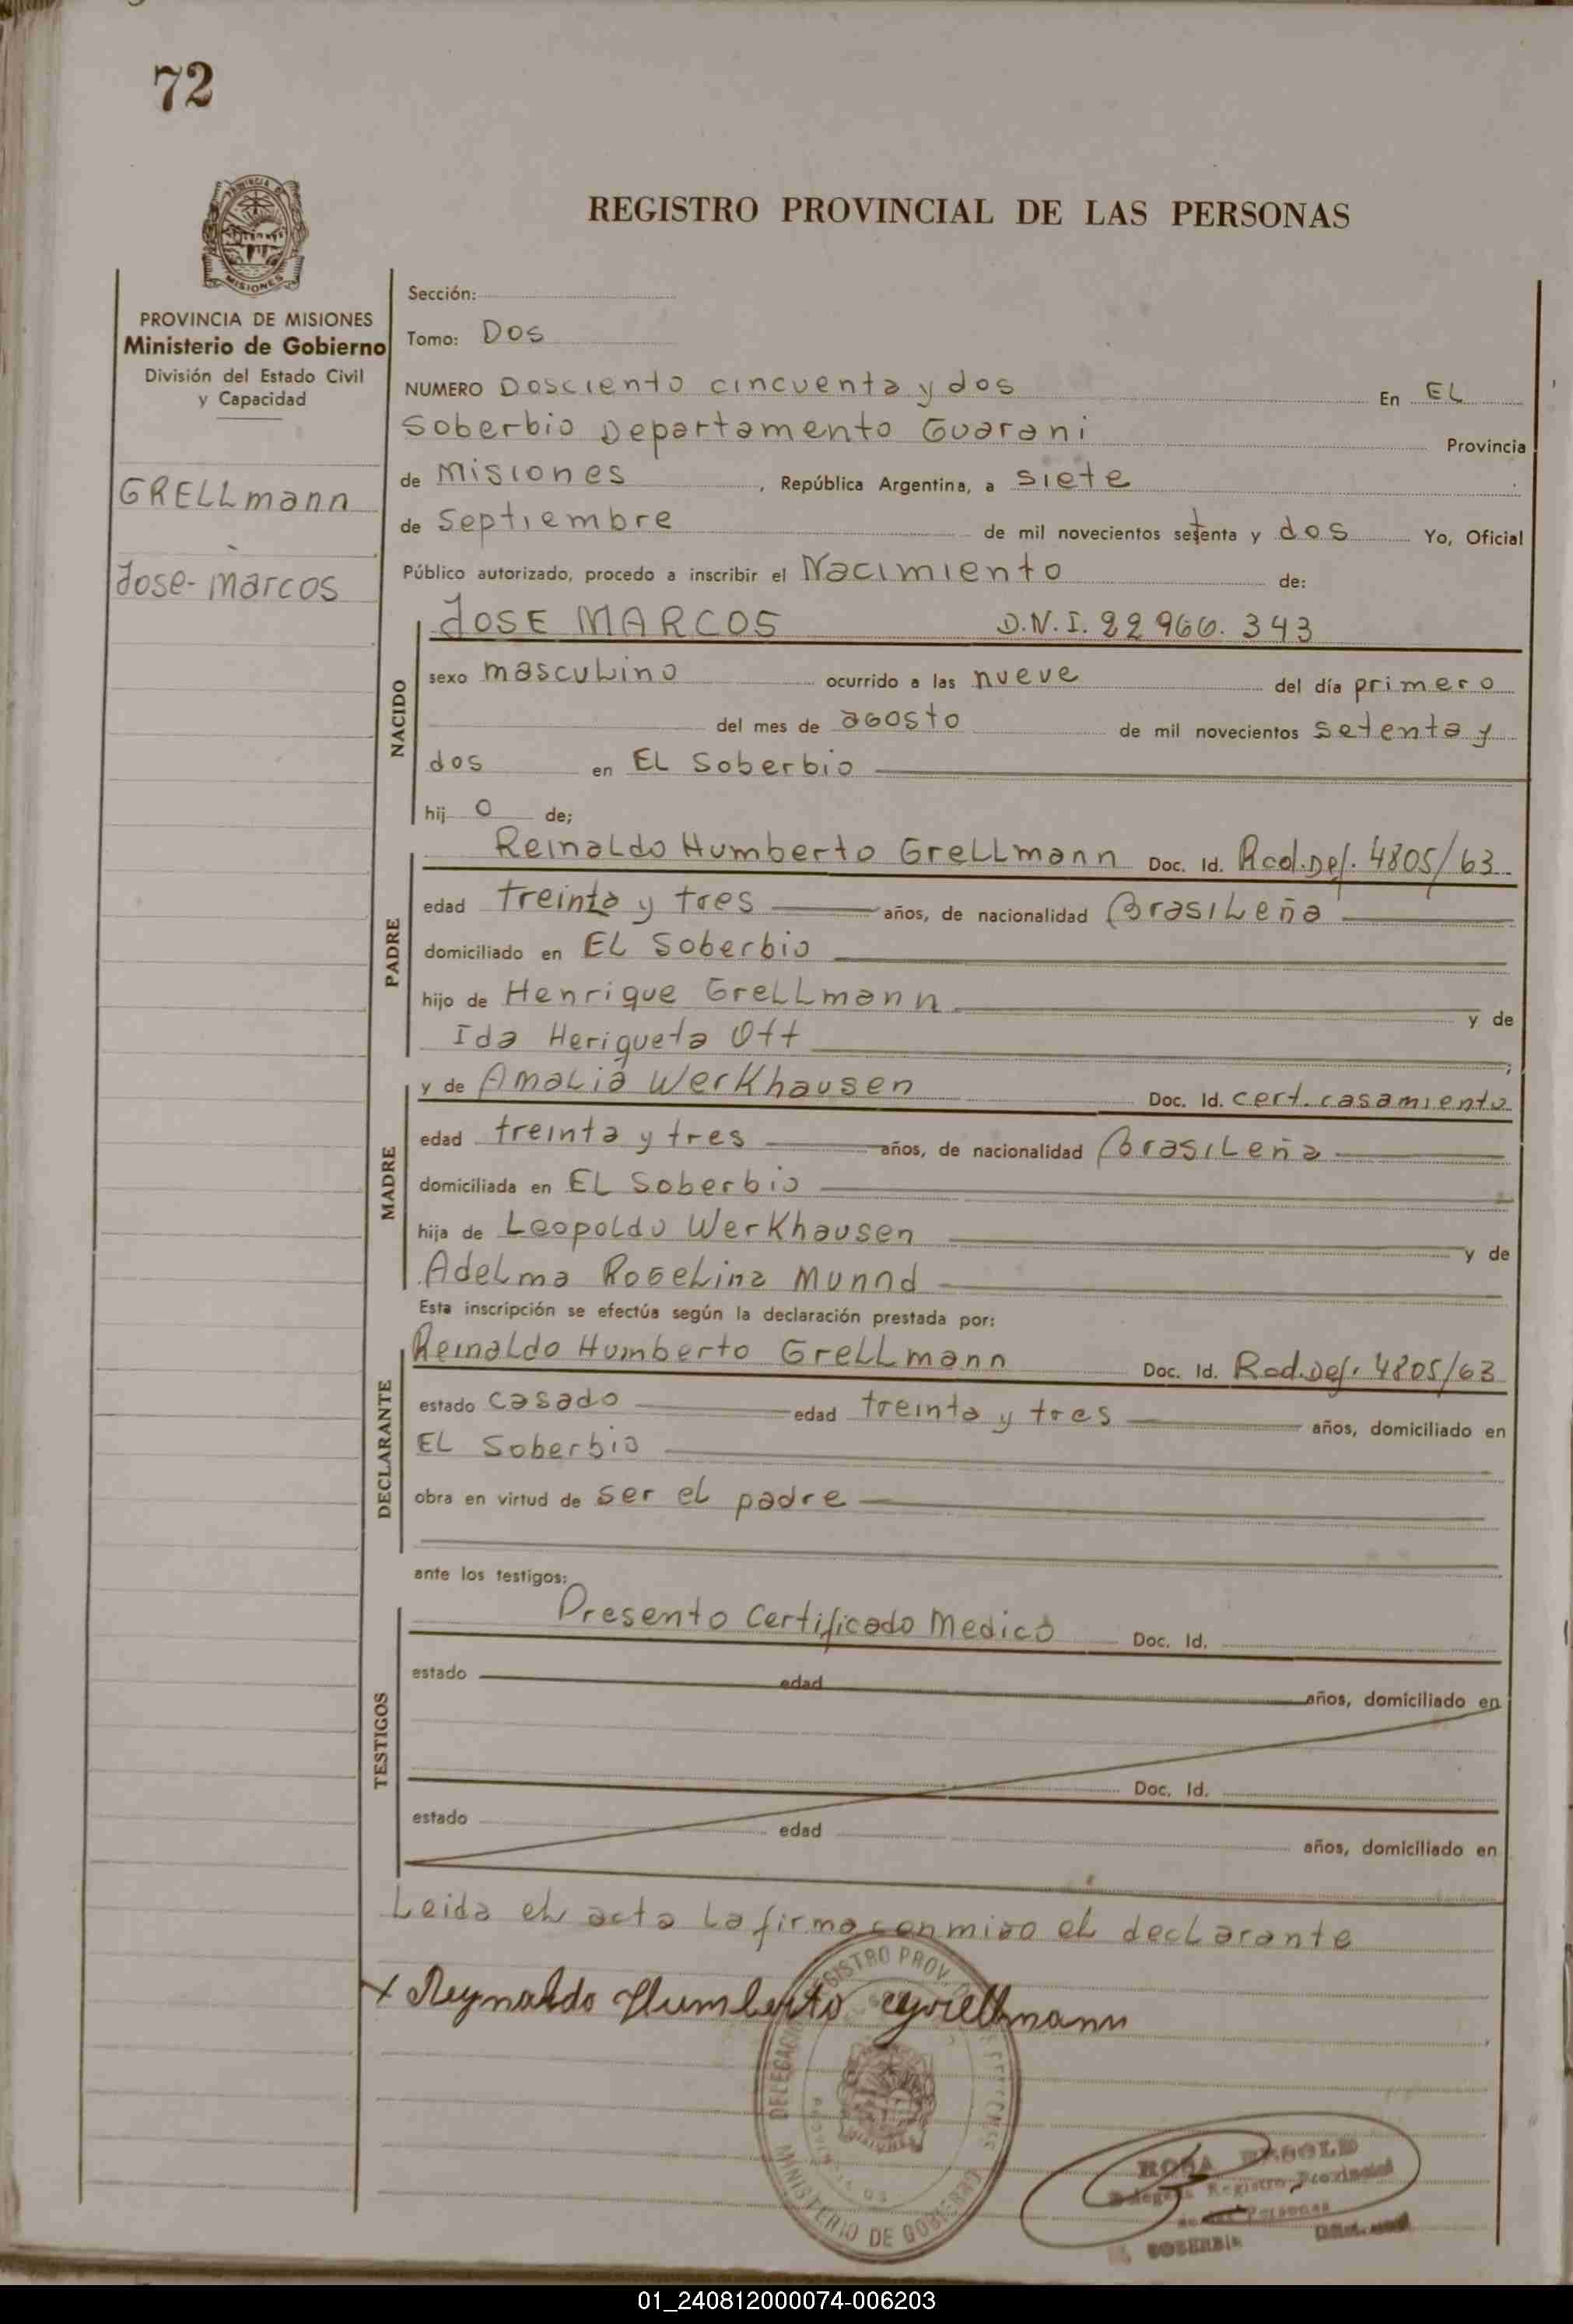 72
REGISTRO PROVINCIAL DE LAS PERSONAS
PROVINCIA DE MISIONES
Ministerio de Gobierno
División del Estado Civil
y Capacidad
GRELLmann
Jose-Marcos
Sección:
Tomo: Dos
NUMERO Dosciento cincuenta y dos En EL
Soberbio Departamento Guarani Provincia
de Misiones, República Argentina, a siete
de septiembre de mil novecientos setenta y dos Yo, Oficial
Público autorizado, procedo a inscribir el Nacimiento de:
NACIDO
JOSE MARCOS D.N.I. 22 960. 343
sexo masculino ocurrido a las nueve del día primero
del mes de agosto de mil novecientos setenta y
dos en EL Soberbio
hij o de;
PADRE
Reinaldo Humberto Grellmann Doc. Id. Rad.Def. 4805/63
edad treinta y tres años, de nacionalidad Brasileña
domiciliado en EL Soberbio
hijo de Henrique Grellmann y de
Ida Heriqueta Ott
MADRE
y de Amalia Werkhausen Doc. Id. cert. casamiento
edad treinta y tres años, de nacionalidad Brasileña
domiciliada en EL Soberbio
hija de Leopoldo Werkhausen y de
Adelma Roselina Munnd
Esta inscripción se efectúa según la declaración prestada por:
DECLARANTE
Reinaldo Humberto Grellmann Doc. Id. Rad.Def. 4805/63
estado casado edad treinta y tres años, domiciliado en
EL Soberbio
obra en virtud de ser el padre
ante los testigos:
TESTIGOS
Presento Certificado Medico Doc. Id.
estado edad años, domiciliado en
Doc. Id.
estado edad años, domiciliado en
Leida el acta la firma conmigo el declarante
x Reynaldo Humberto Grellmann
REGISTRO PROV.
DELEGACION
MINISTERIO DE GOBIERNO
MISIONES
ROSA
Delegada Registro Provincial
de las Personas
SOBERBIO
01_240812000074-006203